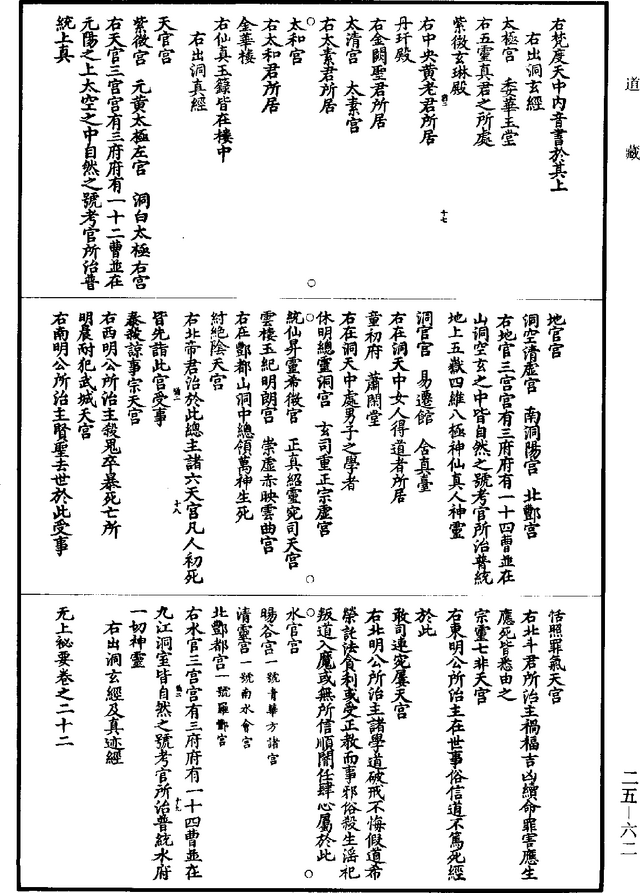 道藏
右梵度天中內音書於其上
右出洞玄經
太極宮　委華玉堂
右五靈真君之所處
紫微玄琳殿
右中央黃老君所居
丹玕殿
右金闕聖君所居
太清宮　太素宮
右太素君所居
太和宮
右太和君所居
金華樓
右仙真玉籙皆在樓中
右出洞真經
天官宮
紫微宮　元黃太極左宮　洞白太極右宮
右天官三宮宮有三府府有一十二曹並在
元陽之上太空之中自然之號考官所治普
統上真
十七
地官宮
洞空清虛宮　南洞陽宮　北酆宮
右地官三宮宮有三府府有一十四曹並在
山洞空玄之中皆自然之號考官所治普統
地上五嶽四維八極神仙真人神靈
洞官宮　易遷館　含真臺
右在洞天中女人得道者所居
童初府　蕭閑堂
右在洞天中處男子之學者
休明總靈洞宮　玄司重正宗虛宮
統仙昇靈希微宮　正真紹靈宛司天宮
雲樓玉紀明朗宮　崇虛赤映雲曲宮
右在酆都山洞中總領萬神生死
紂絕陰天宮
右北帝君治於此總主諸六天宮凡人初死
皆先詣此宮受事
十八
泰殺諒事宗天宮
右西明公所治主殺鬼卒暴死亡所
明晨耐犯武城天宮
右南明公所治主賢聖去世於此受事
恬照罪氣天宮
右北斗君所治主禍福吉凶續命罪害應生
應死皆悉由之
宗靈七非天宮
右東明公所治主在世事俗信道不篤死經
於此
敢司連宛屢天宮
右北明公所治主諸學道破戒不悔假道希
榮託法貪利或受正教而事邪俗殺生淫祀
叛道入魔或無所信順闇任肆心屬於此
水官宮
暘谷宮一號青華方諸宮
清靈宮一號南水會宮
北酆都宮一號羅酆宮
右水官三宮宮有三府府有一十四曹並在
九江洞室皆自然之號考官所治普統水府
十九
一切神靈
右出洞玄經及真迹經
无上祕要卷之二十二
二五—六二